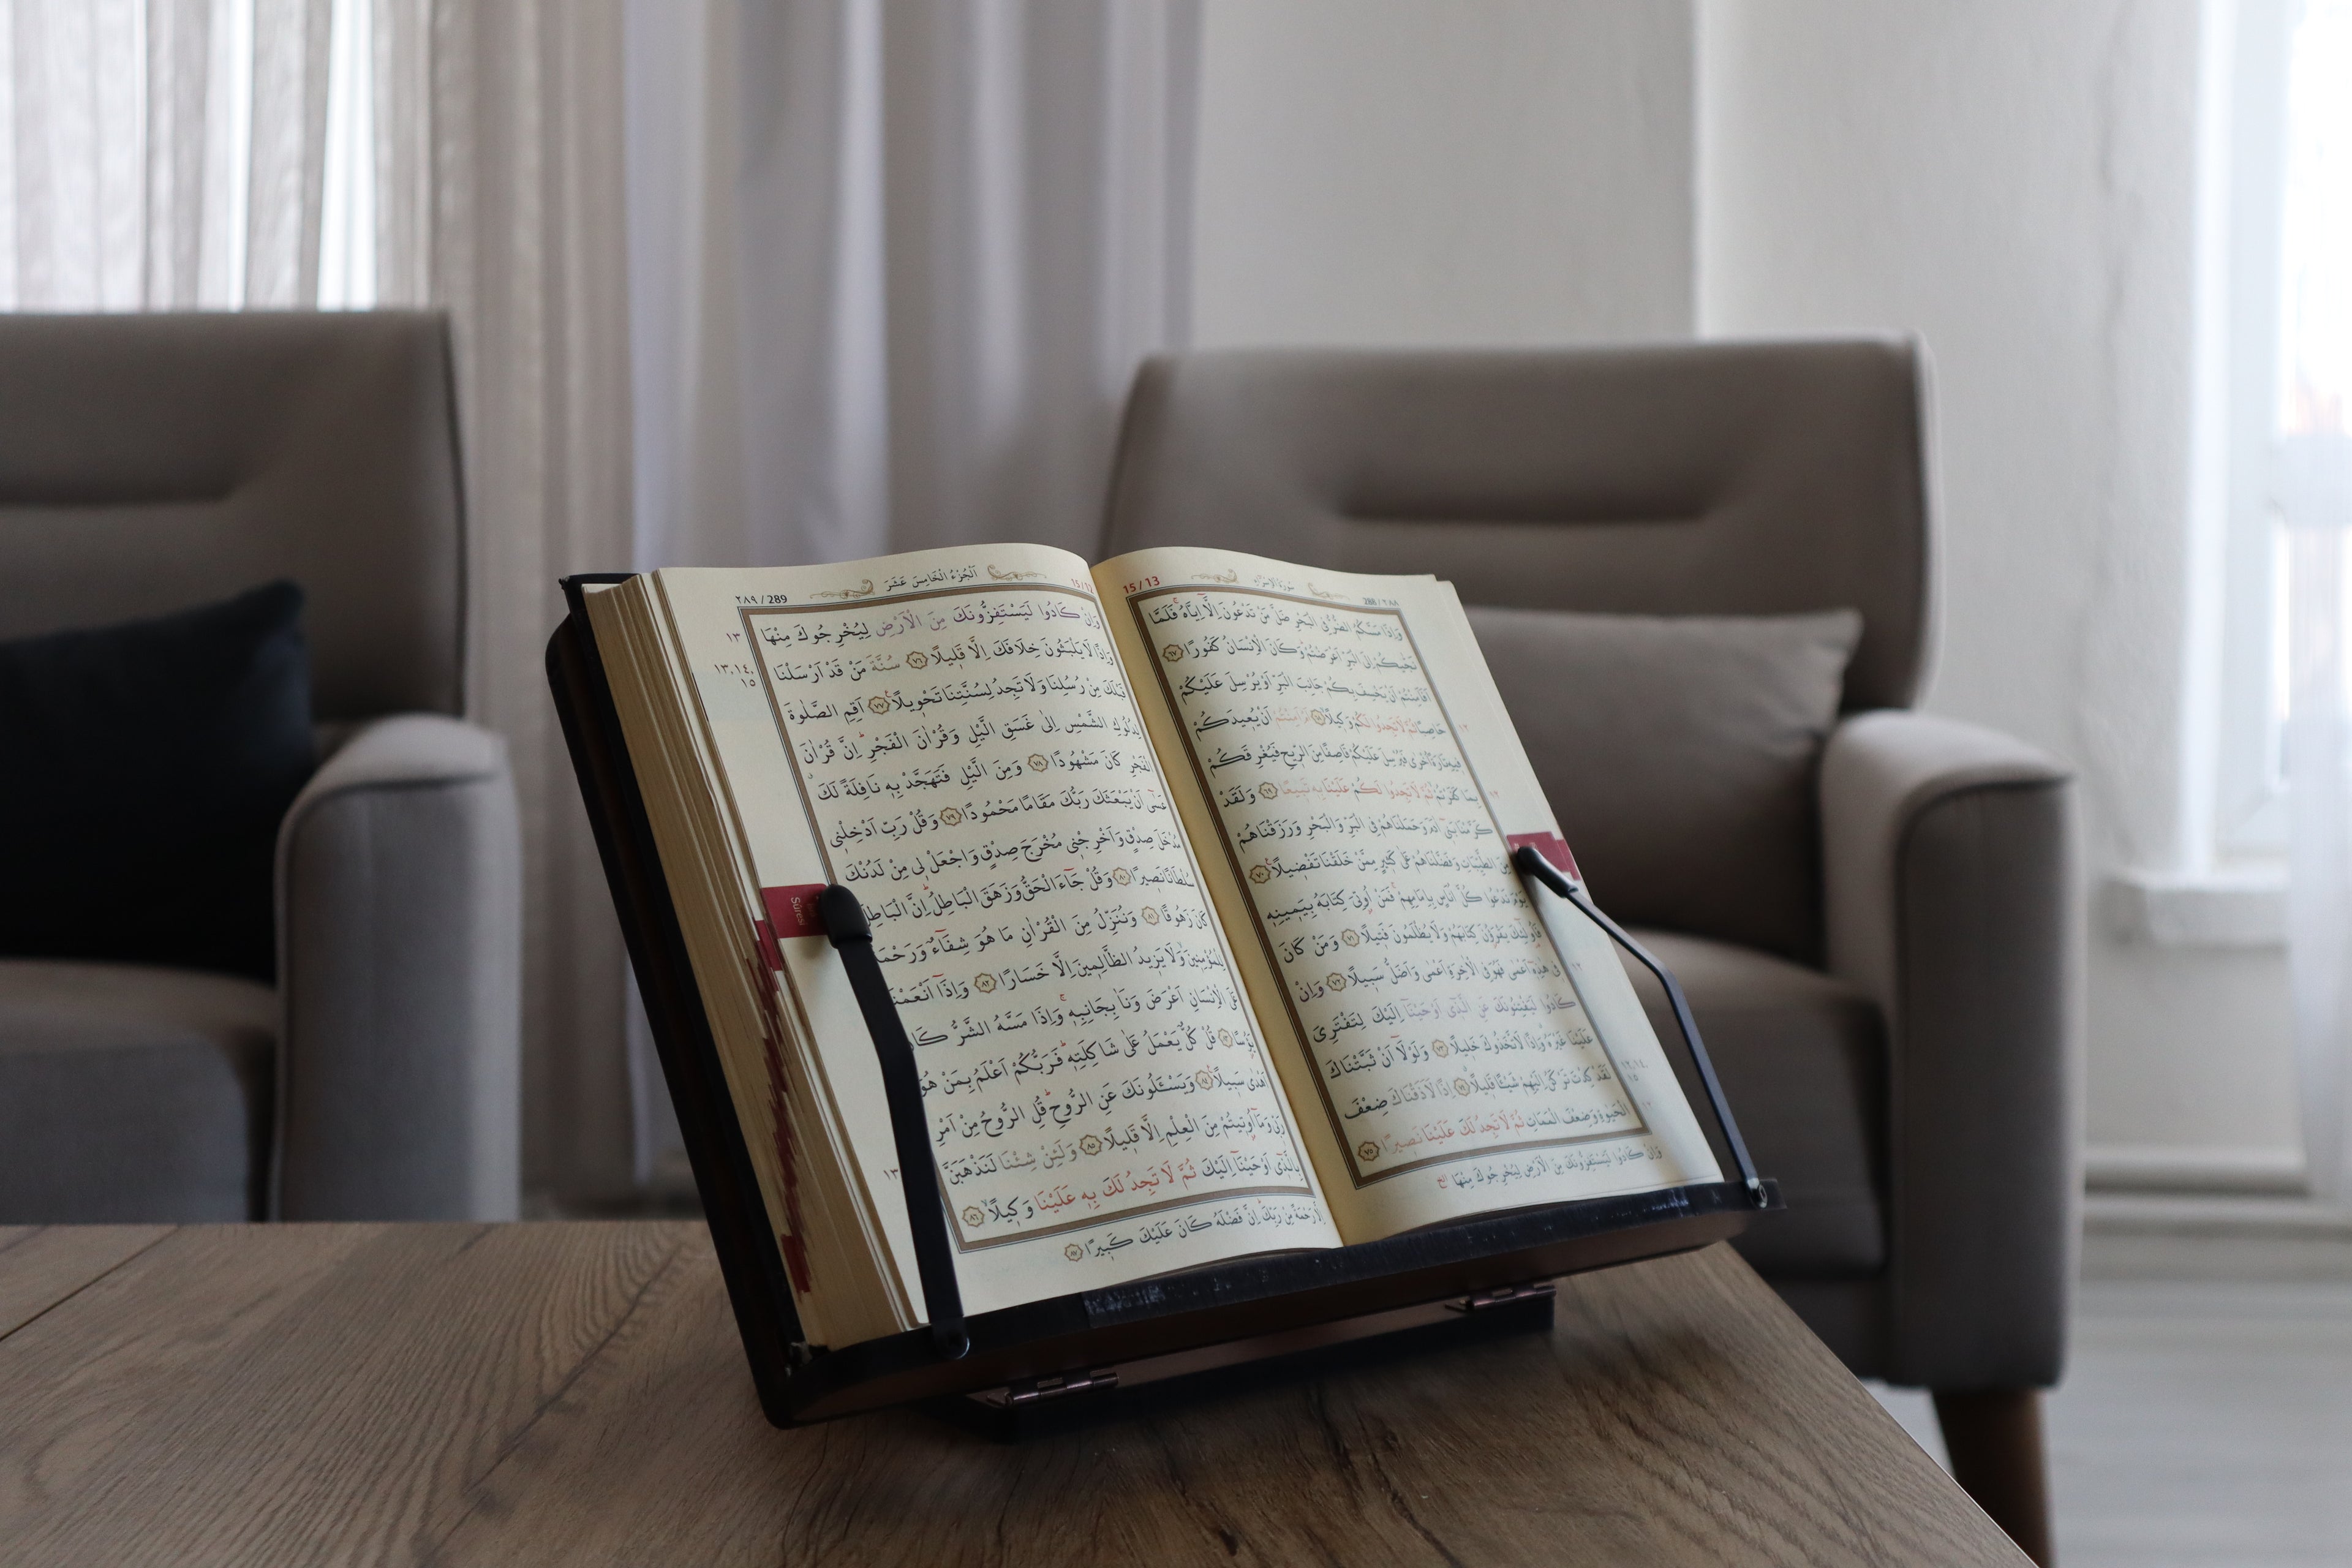 15/13 سُورَةُ الْاِسْرَاءِ 288 / ٢٨٨
وَاِذَا مَسَّكُمُ الضُّرُّ فِي الْبَحْرِ ضَلَّ مَنْ تَدْعُونَ اِلَّٓا اِيَّاهُۚ فَلَمَّا
نَجّٰيكُمْ اِلَى الْبَرِّ اَعْرَضْتُمْ وَكَانَ الْاِنْسَانُ كَفُورًا ﴿٦٧﴾
اَفَاَمِنْتُمْ اَنْ يَخْسِفَ بِكُمْ جَانِبَ الْبَرِّ اَوْ يُرْسِلَ عَلَيْكُمْ
حَاصِبًا ثُمَّ لَا تَجِدُوا لَكُمْ وَكِيلًا ﴿٦٨﴾ اَمْ اَمِنْتُمْ اَنْ يُعِيدَكُمْ
فِيهِ تَارَةً اُخْرٰى فَيُرْسِلَ عَلَيْكُمْ قَاصِفًا مِنَ الرِّيحِ فَيُغْرِقَكُمْ
بِمَا كَفَرْتُمْ ثُمَّ لَا تَجِدُوا لَكُمْ عَلَيْنَا بِهِ تَبِيعًا ﴿٦٩﴾ وَلَقَدْ
كَرَّمْنَا بَنِٓي اٰدَمَ وَحَمَلْنَاهُمْ فِي الْبَرِّ وَالْبَحْرِ وَرَزَقْنَاهُمْ
مِنَ الطَّيِّبَاتِ وَفَضَّلْنَاهُمْ عَلٰى كَثِيرٍ مِمَّنْ خَلَقْنَا تَفْضِيلًا ﴿٧٠﴾
يَوْمَ نَدْعُوا كُلَّ اُنَاسٍ بِاِمَامِهِمْ فَمَنْ اُو۫تِيَ كِتَابَهُ بِيَمِينِهِ
فَاُو۬لٰٓئِكَ يَقْرَؤُ۫نَ كِتَابَهُمْ وَلَا يُظْلَمُونَ فَتِيلًا ﴿٧١﴾ وَمَنْ كَانَ
فِي هٰذِهِٓ اَعْمٰى فَهُوَ فِي الْاٰخِرَةِ اَعْمٰى وَاَضَلُّ سَبِيلًا ﴿٧٢﴾ وَاِنْ
كَادُوا لَيَفْتِنُونَكَ عَنِ الَّذِٓي اَوْحَيْنَٓا اِلَيْكَ لِتَفْتَرِيَ
عَلَيْنَا غَيْرَهُ وَاِذًا لَاتَّخَذُوكَ خَلِيلًا ﴿٧٣﴾ وَلَوْلَٓا اَنْ ثَبَّتْنَاكَ
لَقَدْ كِدْتَ تَرْكَنُ اِلَيْهِمْ شَيْـًٔا قَلِيلًا ﴿٧٤﴾ اِذًا لَاَذَقْنَاكَ ضِعْفَ
الْحَيٰوةِ وَضِعْفَ الْمَمَاتِ ثُمَّ لَا تَجِدُ لَكَ عَلَيْنَا نَصِيرًا ﴿٧٥﴾
وَاِنْ كَادُوا لَيَسْتَفِزُّونَكَ مِنَ الْاَرْضِ لِيُخْرِجُوكَ مِنْهَا
٢٨٩ / 289 اَلْجُزْءُ الْخَامِسَ عَشَرَ
وَاِنْ كَادُوا لَيَسْتَفِزُّونَكَ مِنَ الْاَرْضِ لِيُخْرِجُوكَ مِنْهَا
وَاِذًا لَا يَلْبَثُونَ خِلَافَكَ اِلَّا قَلِيلًا ﴿٧٦﴾ سُنَّةَ مَنْ قَدْ اَرْسَلْنَا
قَبْلَكَ مِنْ رُسُلِنَا وَلَا تَجِدُ لِسُنَّتِنَا تَحْوِيلًا ﴿٧٧﴾ اَقِمِ الصَّلٰوةَ
لِدُلُوكِ الشَّمْسِ اِلٰى غَسَقِ الَّيْلِ وَقُرْاٰنَ الْفَجْرِ اِنَّ قُرْاٰنَ
الْفَجْرِ كَانَ مَشْهُودًا ﴿٧٨﴾ وَمِنَ الَّيْلِ فَتَهَجَّدْ بِهِ نَافِلَةً لَكَ
عَسٰٓى اَنْ يَبْعَثَكَ رَبُّكَ مَقَامًا مَحْمُودًا ﴿٧٩﴾ وَقُلْ رَبِّ اَدْخِلْنِي
مُدْخَلَ صِدْقٍ وَاَخْرِجْنِي مُخْرَجَ صِدْقٍ وَاجْعَلْ لِي مِنْ لَدُنْكَ
سُلْطَانًا نَصِيرًا ﴿٨٠﴾ وَقُلْ جَٓاءَ الْحَقُّ وَزَهَقَ الْبَاطِلُ اِنَّ الْبَاطِلَ
كَانَ زَهُوقًا ﴿٨١﴾ وَنُنَزِّلُ مِنَ الْقُرْاٰنِ مَا هُوَ شِفَٓاءٌ وَرَحْمَةٌ
لِلْمُؤْمِنِينَ وَلَا يَزِيدُ الظَّالِمِينَ اِلَّا خَسَارًا ﴿٨٢﴾ وَاِذَٓا اَنْعَمْنَا
عَلَى الْاِنْسَانِ اَعْرَضَ وَنَاٰ بِجَانِبِهِۚ وَاِذَا مَسَّهُ الشَّرُّ كَانَ
يَؤُ۫سًا ﴿٨٣﴾ قُلْ كُلٌّ يَعْمَلُ عَلٰى شَاكِلَتِهِ فَرَبُّكُمْ اَعْلَمُ بِمَنْ هُوَ
اَهْدٰى سَبِيلًا ﴿٨٤﴾ وَيَسْـَٔلُونَكَ عَنِ الرُّوحِ قُلِ الرُّوحُ مِنْ اَمْرِ
رَبِّي وَمَٓا اُو۫تِيتُمْ مِنَ الْعِلْمِ اِلَّا قَلِيلًا ﴿٨٥﴾ وَلَئِنْ شِئْنَا لَنَذْهَبَنَّ
بِالَّذِٓي اَوْحَيْنَٓا اِلَيْكَ ثُمَّ لَا تَجِدُ لَكَ بِهِ عَلَيْنَا وَكِيلًا ﴿٨٦﴾
اِلَّا رَحْمَةً مِنْ رَبِّكَ اِنَّ فَضْلَهُ كَانَ عَلَيْكَ كَبِيرًا ﴿٨٧﴾
١٣
١٣،١٤،
١٥
١٣
Sûresi